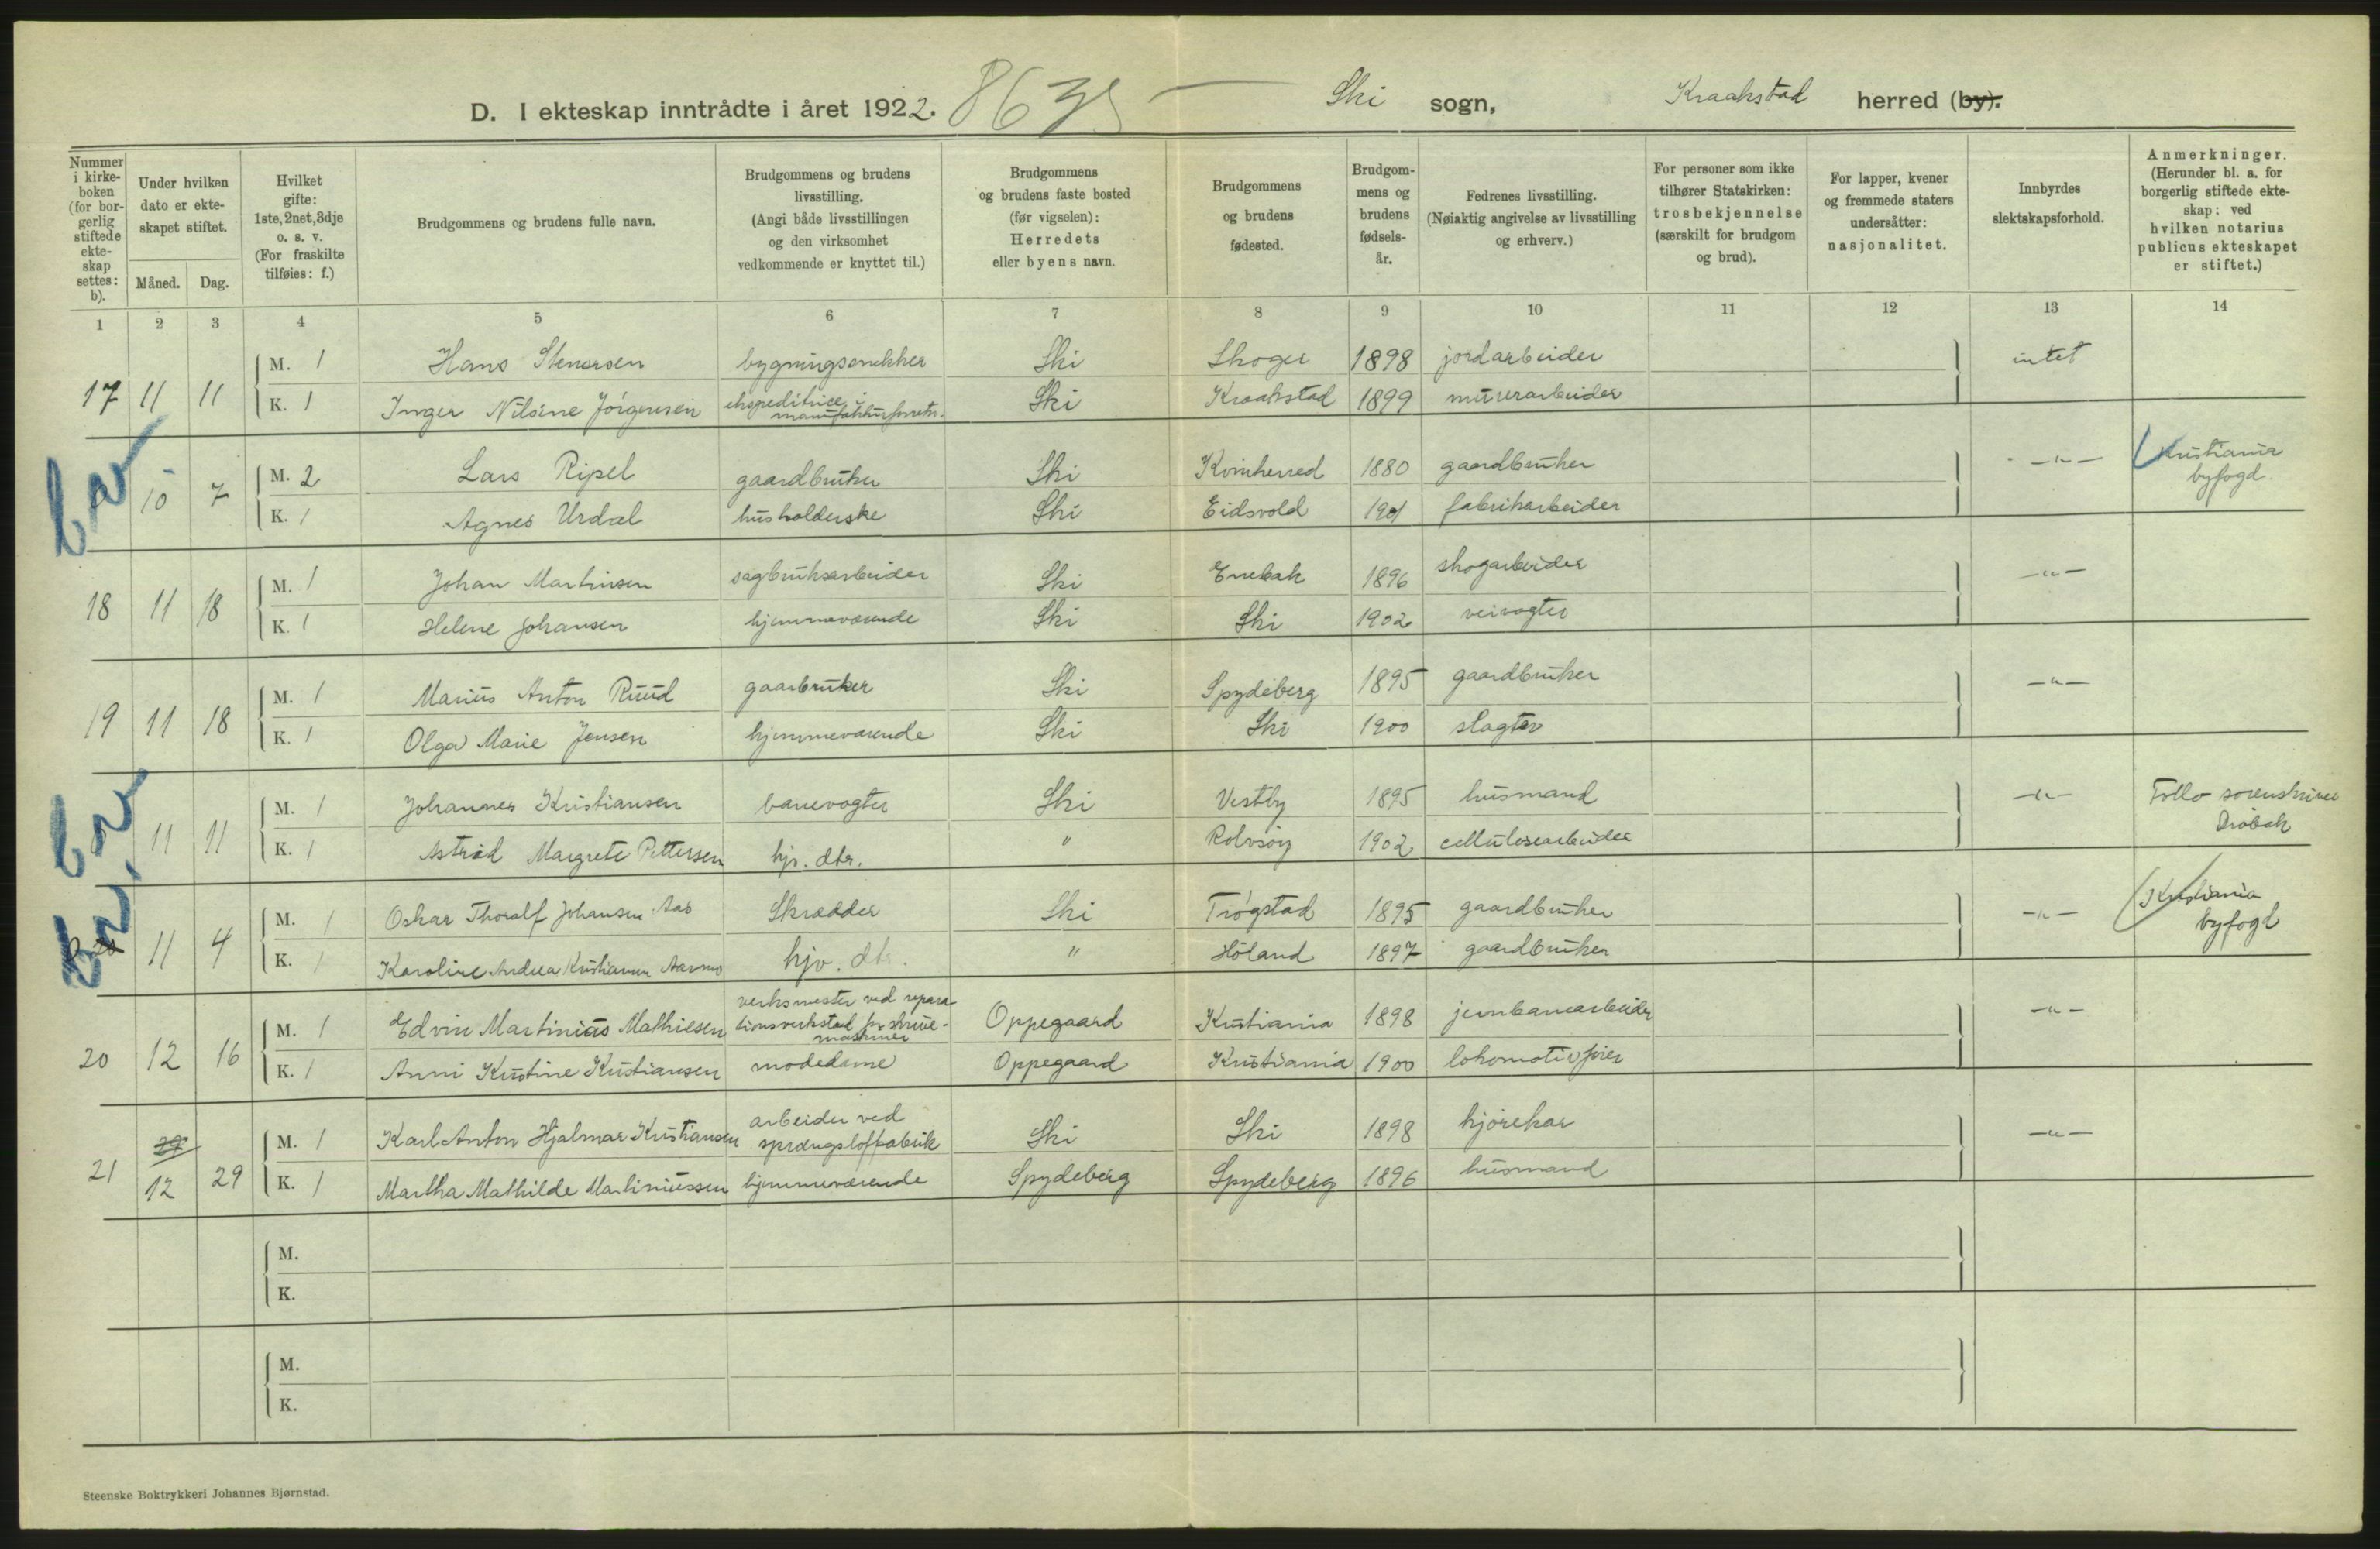 D. I ekteskap inntrådte i året 1922. Ski sogn, Kraakstad herred (by).
Nummer i kirkeboken (for borgerlig stiftede ekteskap settes: b).
Under hvilken dato er ekteskapet stiftet.
Måned. Dag.
Hvilket gifte: 1ste, 2net, 3dje o. s. v. (For fraskilte tilføies: f.)
Brudgommens og brudens fulle navn.
Brudgommens og brudens livsstilling. (Angi både livsstillingen og den virksomhet vedkommende er knyttet til.)
Brudgommens og brudens faste bosted (før vigselen): Herredets eller byens navn.
Brudgommens og brudens fødested.
Brudgommens og brudens fødselsår.
Fedrenes livsstilling. (Nøiaktig angivelse av livsstilling og erhverv.)
For personer som ikke tilhører Statskirken: trosbekjennelse (særskilt for brudgom og brud).
For lapper, kvener og fremmede staters undersåtter: nasjonalitet.
Innbyrdes slektskapsforhold.
Anmerkninger. (Herunder bl. a. for borgerlig stiftede ekteskap: ved hvilken notarius publicus ekteskapet er stiftet.)
1 2 3 4 5 6 7 8 9 10 11 12 13 14
M. 1 Hans Stenersen bygningssnekker Ski Skoger 1898 jordarbeider intet
17 11 11 K. 1 Inger Nilsine Jörgensen ekspeditrice i manufakturforretn. Ski Kraakstad 1899 murerarbeider
M. 2 Lars Ripel gaardbruker Ski Kvinherred 1880 gaardbruker -"- Kristiania byfogd
10 7 K. 1 Agnes Urdal husholderske Ski Eidsvold 1901 fabrikarbeider
M. 1 Johan Martinsen sagbruksarbeider Ski Enebak 1896 skogarbeider -"-
18 11 18 K. 1 Helene Johansen hjemmeværende Ski Ski 1902 veivogter
M. 1 Marius Anton Ruud gaarbruker Ski Spydeberg 1895 gaardbruker -"-
19 11 18 K. 1 Olga Marie Jensen hjemmeværende Ski Ski 1900 slagter
M. 1 Johannes Kristiansen banevogter Ski Vestby 1895 husmand -"- Follo sorenskriver Drøbak
11 11 K. 1 Astrid Margrete Pettersen hjv. dtr. " Rolvsøy 1902 cellulosearbeider
M. 1 Oskar Thoralf Johansen Aas Skrædder Ski Trögstad 1895 gaardbruker -"- Kristiania byfogd
11 4 K. 1 Karoline Andrea Kristiansen hjv. dtr. " Höland 1897 gaardbruker
M. 1 Edvin Martinius Mathiesen verksmester ved reparationsverksted for skrivemaskiner Oppegaard Kristiania 1898 jernbanearbeider -"-
20 12 16 K. 1 Anni Kristine Kristiansen modedame Oppegaard Kristiania 1900 lokomotivfører
M. 1 Karl Anton Hjalmar Kristiansen arbeider ved sprængstoffabrik Ski Ski 1898 kjørekar -"-
21 12 29 K. 1 Martha Mathilde Martiniussen hjemmeværende Spydeberg Spydeberg 1896 husmand
M.
K.
M.
K.
Steenske Boktrykkeri Johannes Bjørnstad.